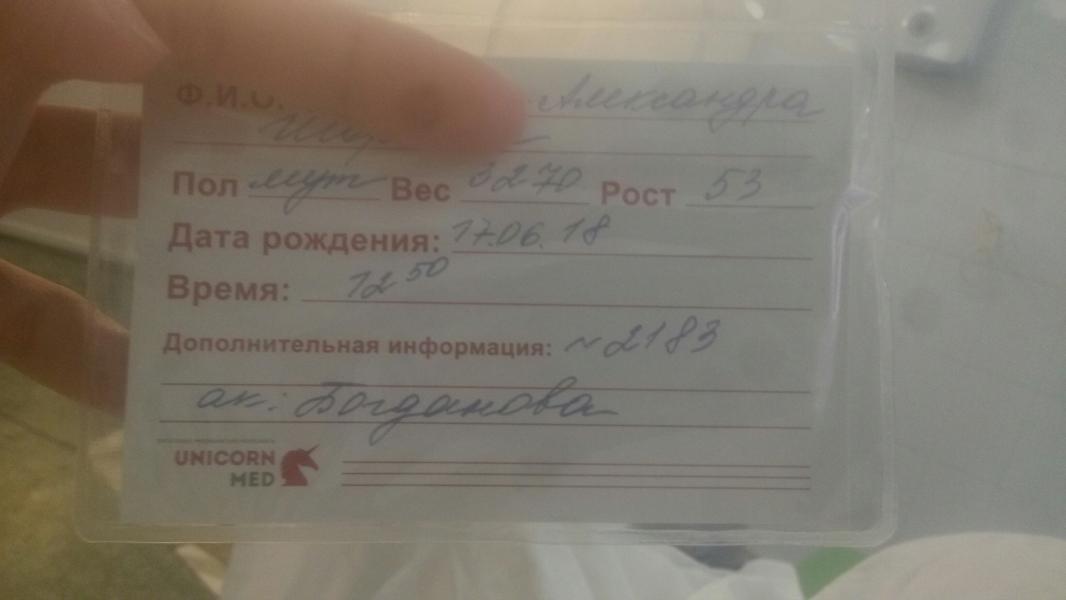 Ф.И.О. Александра
Пол муж Вес 3270 Рост 53
Дата рождения: 17.06.18
Время: 12 50
Дополнительная информация: ~ 2183
ак: Богданова
UNICORN
MED